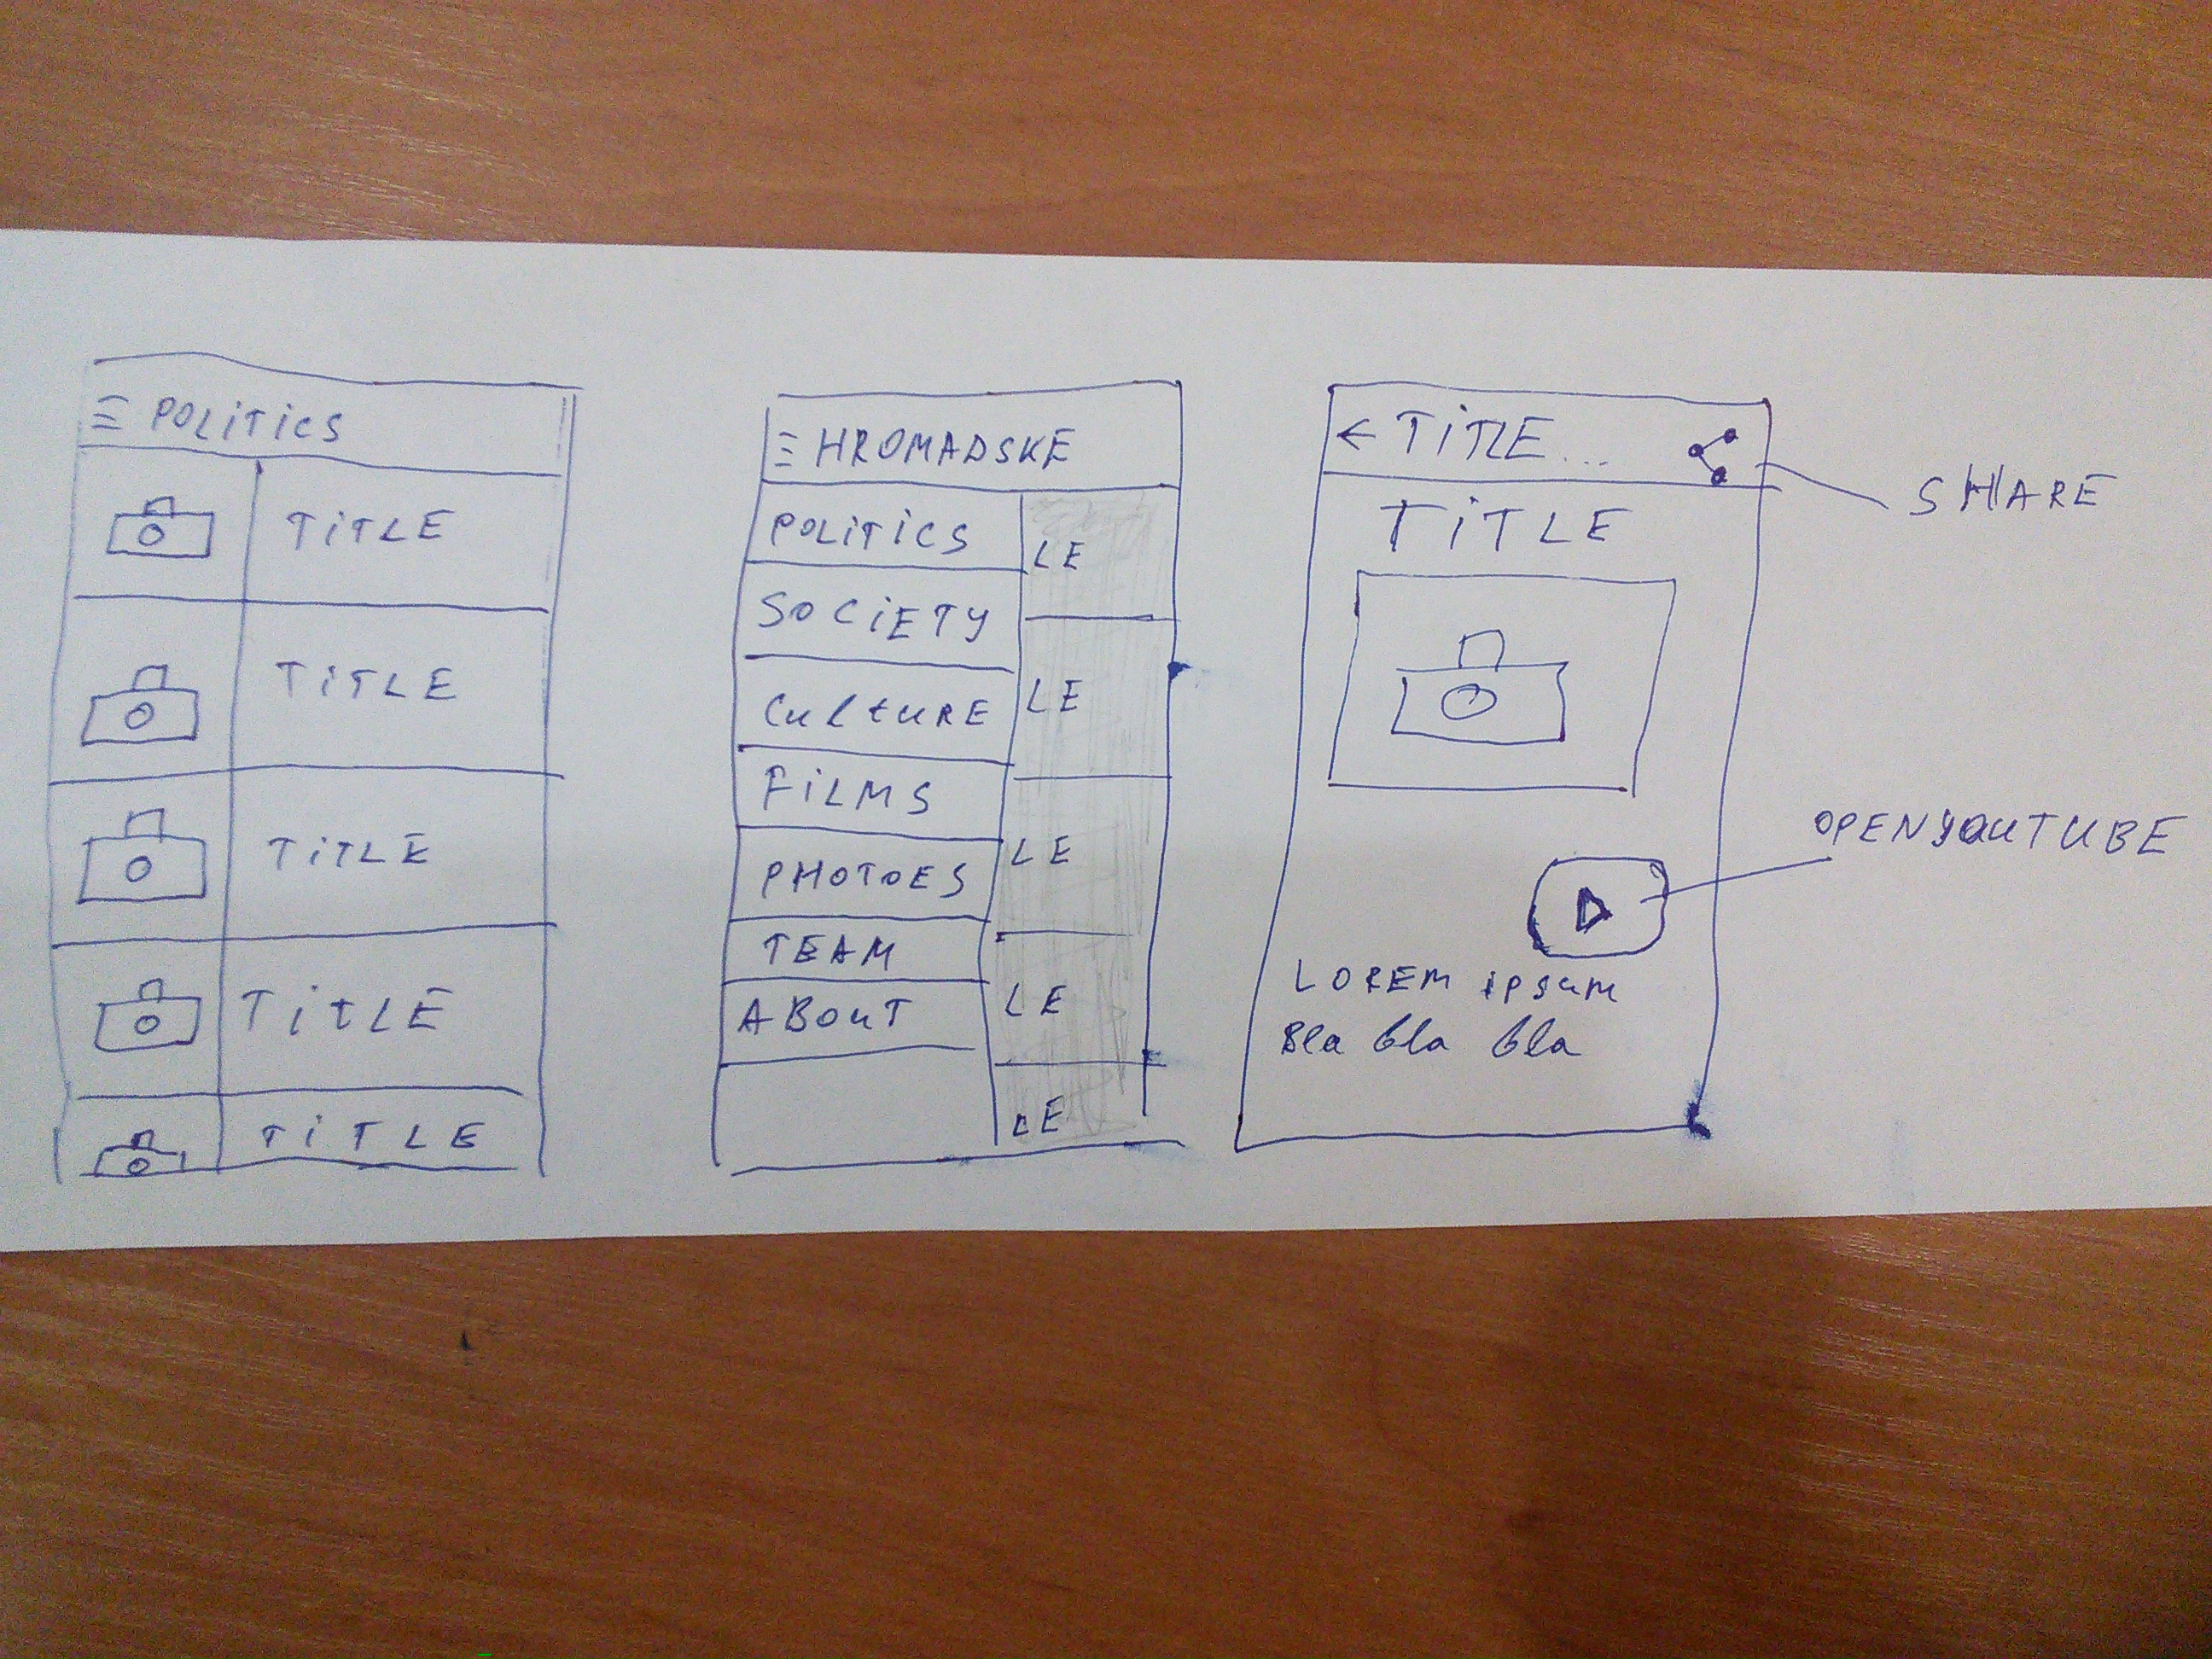 POLITICS
TITLE
TITLE
TITLE
TITLE
TITLE
HROMADSKE
POLITICS
LE
SOCIETY
LE
CULTURE
FILMS
LE
PHOTOES
TEAM
LE
ABOUT
LE
← TITLE...
SHARE
TITLE
OPEN YOUTUBE
LOREM ipsum
Bla bla bla